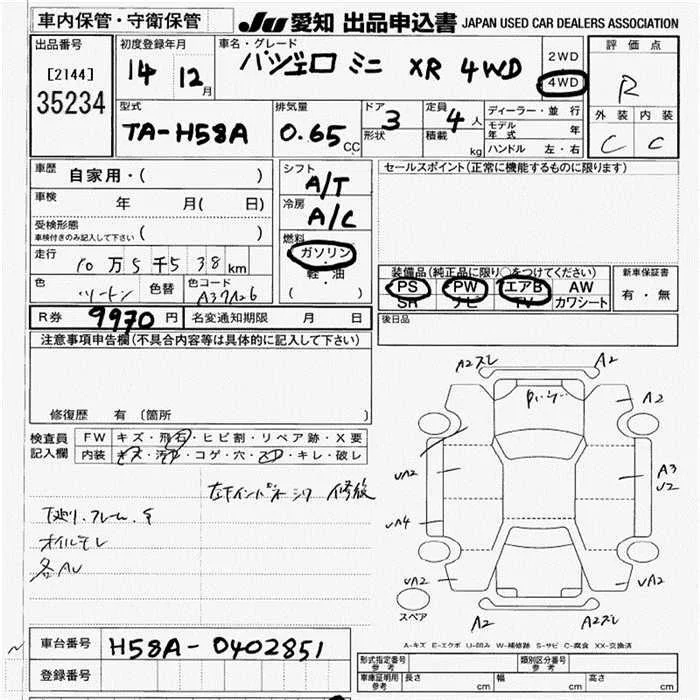 車内保管・守衛保管
JU 愛知 出品申込書 JAPAN USED CAR DEALERS ASSOCIATION
出品番号
[2144]
35234
初度登録年月
14 12月
車名・グレード
パジェロ ミニ XR 4WD
2WD
4WD
評価点
R
外装 内装
C C
型式
TA-H58A
排気量
0.65 CC
ドア 3
形状
定員 4人
積載 kg
ディーラー・並行
モデル年式 年
ハンドル 左・右
車歴 自家用・( )
車検 年 月( 日)
受検形態
車検付きのみ記入して下さい ( )
走行 10万5千538km
色 ツートン 色替 色コード A37A26
シフト A/T
冷房 A/C
燃料
ガソリン
軽・油
( )
セールスポイント(正常に機能するものに限ります)
装備品(純正品に限り○をつけてください)
PS PW エアB AW
SR ナビ TV カワシート
新車保証書
有・無
後日品
R券 9970円 名変通知期限 月 日
注意事項申告欄(不具合内容等は具体的に記入して下さい)
修復歴 有 [箇所 ]
検査員記入欄
FW キズ・飛石・ヒビ割・リペア跡・X要
内装 キズ・汚れ・コゲ・穴・スレ・キレ・破レ
左下インパネ シワ 修復
下廻り・フレーム サ
オイルモレ
各AU
A2ズレ A2
A2
UA2
A3
U2
UA4
UA2 UA2
スペア
A2 A2ズレ
A-キズ E-エクボ U-凹み W-補修跡 S-サビ C-腐食 XX-交換済
車台番号 H58A-0402851
登録番号
形式指定番号 参考
類別区分番号 参考
車庫証明用 参考 長さ cm 幅 cm 高さ cm